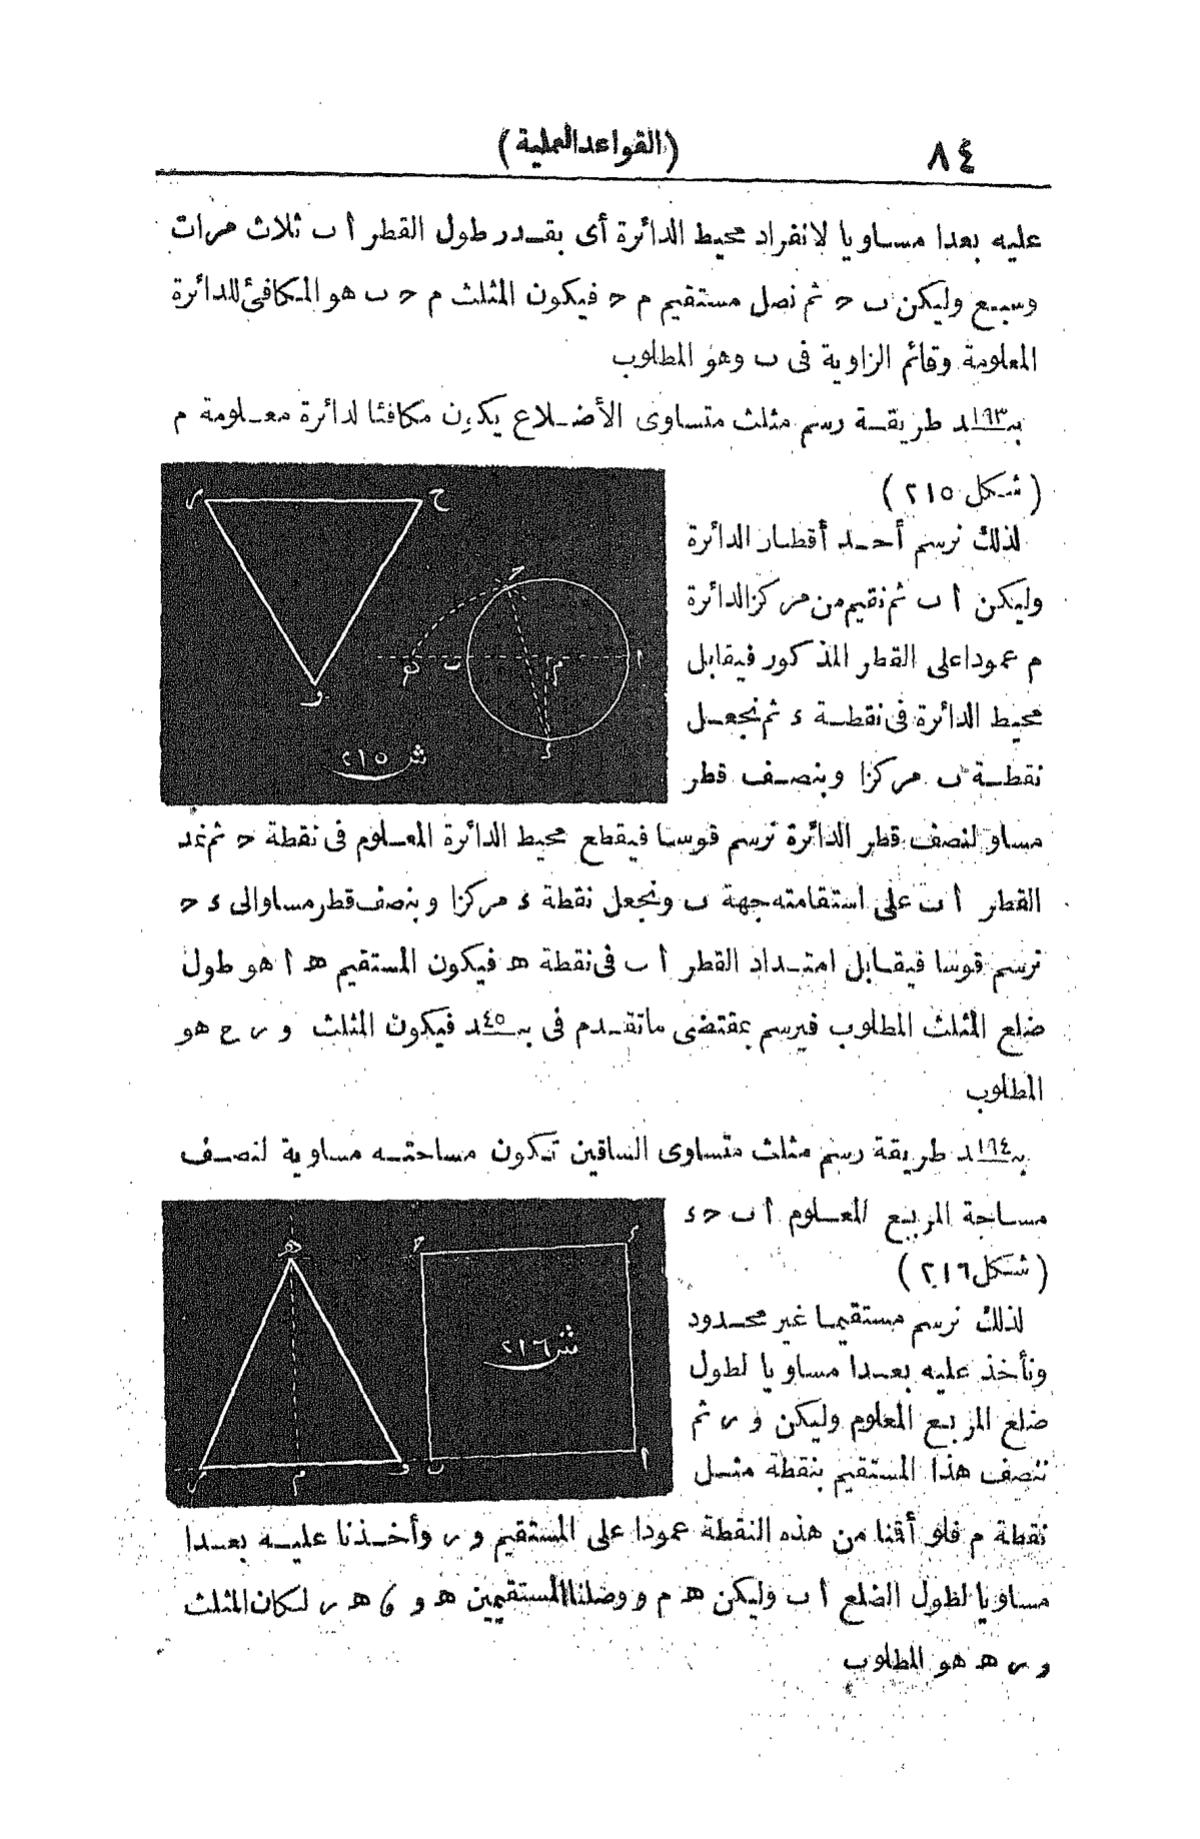 ٨٤
(القواعد العملية)
عليه بعدا مساويا لانفراد محيط الدائرة أى بقدر طول القطر أ ب ثلاث مرات
وسبع وليكن ب ح ثم نصل مستقيم م ح فيكون المثلث م ح ب هو المكافئ للدائرة
المعلومة وقائم الزاوية فى ب وهو المطلوب
بـ١٩٣ـد طريقة رسم مثلث متساوى الأضلاع يكون مكافئا لدائرة معلومة م
(شكل ٢١٥)
لذلك نرسم أحد أقطار الدائرة
وليكن أ ب ثم نقيم من مركز الدائرة
م عمودا على القطر المذكور فيقابل
محيط الدائرة فى نقطة ء ثم نجعل
نقطة ب مركزا وبنصف قطر
مساو لنصف قطر الدائرة نرسم قوسا فيقطع محيط الدائرة المعلوم فى نقطة ح ثم نمد
القطر أ ب على استقامته جهة ب ونجعل نقطة ء مركزا وبنصف قطر مساو الى ء ح
نرسم قوسا فيقابل امتداد القطر أ ب فى نقطة ه فيكون المستقيم ه أ هو طول
ضلع المثلث المطلوب فيرسم بمقتضى ما تقدم فى بـ٤٥ـد فيكون المثلث و ر ح هو
المطلوب
ر
ح
و
ح
ه
ب
م
أ
ء
ش ٢١٥
بـ١٩٤ـد طريقة رسم مثلث متساوى الساقين تكون مساحته مساوية لنصف
مساحة المربع المعلوم أ ب ح ء
(شكل ٢١٦)
لذلك نرسم مستقيما غير محدود
ونأخذ عليه بعدا مساويا لطول
ضلع المربع المعلوم وليكن و ر ثم
ننصف هذا المستقيم بنقطة مثل
نقطة م فلو أقمنا من هذه النقطة عمودا على المستقيم و ر وأخذنا عليه بعدا
مساويا لطول الضلع أ ب وليكن ه م ووصلنا المستقيمين ه و ، ه ر لكان المثلث
و ر ه هو المطلوب
ه
ح
ء
ش ٢١٦
ر
م
و
ب
أ